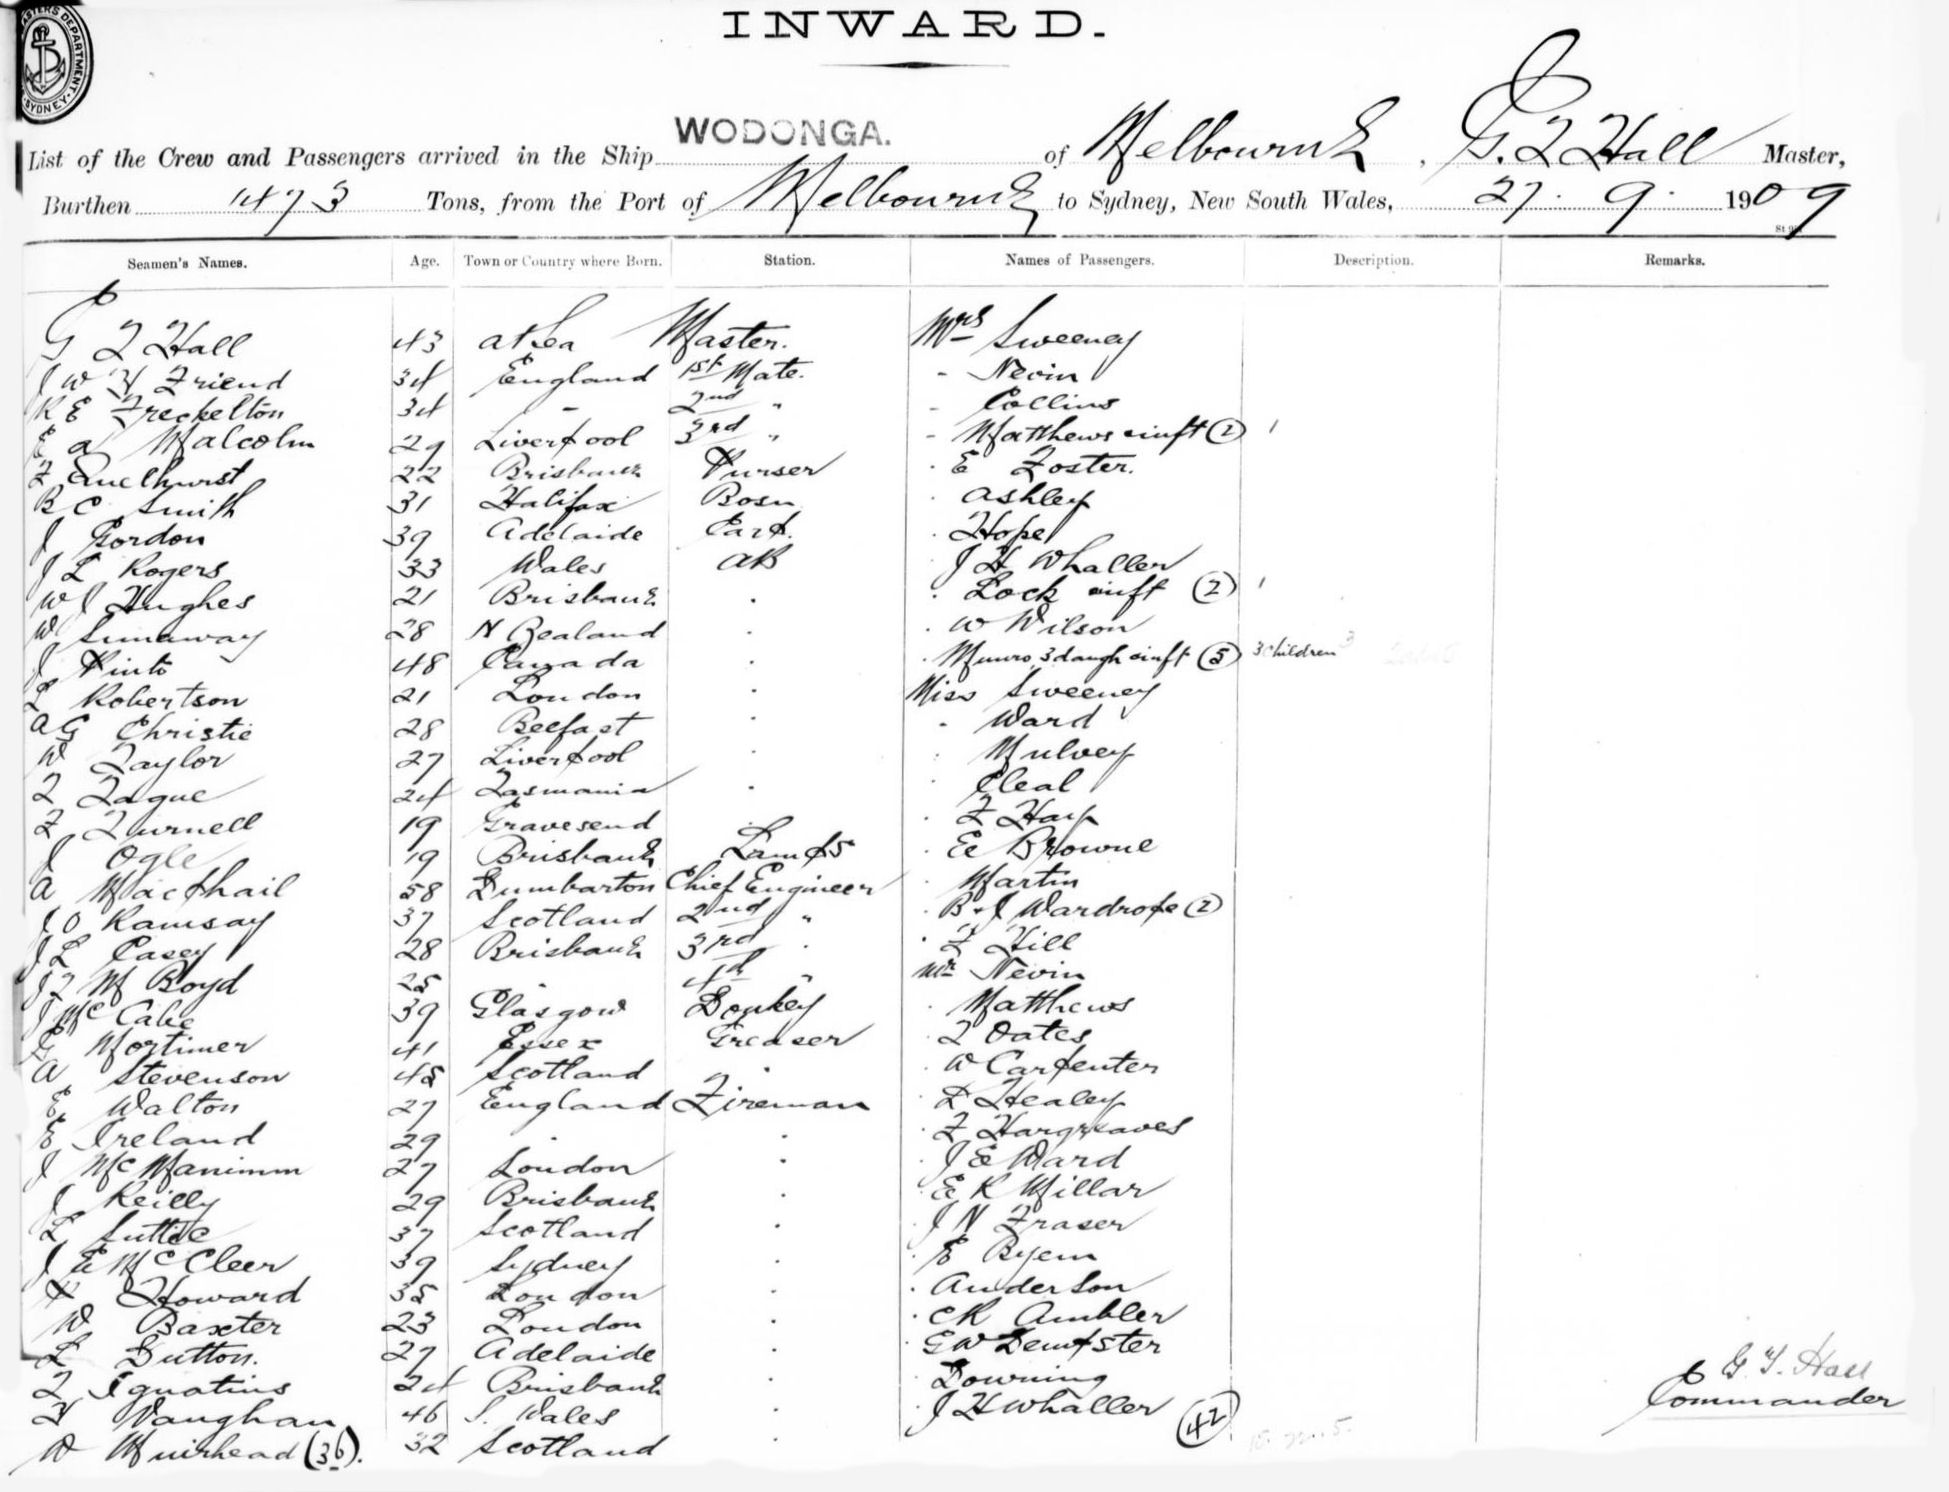 MASTERS DEPARTMENT
SYDNEY
INWARD.
List of the Crew and Passengers arrived in the Ship WODONGA. of Melbourne, G. T Hall Master,
Burthen 1473 Tons, from the Port of Melbourne to Sydney, New South Wales, 27. 9. 1909
Seamen's Names. Age. Town or Country where Born. Station. Names of Passengers. Description. Remarks.
G T Hall 43 at Sea Master. Mrs Sweeney
J W H Friend 34 England 1st Mate. - Nevin
R E Freckelton 34 - 2nd " - Collins
E A Malcolm 29 Liverpool 3rd " - Matthews & inft (2) 1
F 22 Brisbane Purser . E Foster.
B C Smith 31 Halifax Bosn . Ashley
J Gordon 39 Adelaide Carp. . Hope
J L Rogers 33 Wales AB . J H Whaller
W J Hughes 21 Brisbane . . Lock & inft (2) 1
W 28 N Zealand . . W Wilson
J Pinto 48 Canada . . Munro, 3 daugh & inft (5) 3 Children 3
L Robertson 21 London . Miss Sweeney
A G Christie 28 Belfast . - Ward
W Taylor 27 Liverpool . . Mulvey
T Tague 24 Tasmania . . Cleal
F Turnell 19 Gravesend . . F Hay
J Ogle 19 Brisbane Lamps . Ee Browne
A Macphail 58 Dumbarton Chief Engineer . Martin
J O Ramsay 37 Scotland 2nd " . B & J Wardrope (2)
J L Casey 28 Brisbane 3rd . . F Hill
J T M Boyd 25 " 4th " Mr Nevin
J McCabe 39 Glasgow Donkey . Matthews
G Mortimer 41 Essex Greaser . T Oates
A Stevenson 45 Scotland . . W Carpenter
E Walton 27 England Fireman . D Healey
E Ireland 29 . . . F Hargreaves
J McManimm 27 London . . J E Ward
J Reilly 29 Brisbane . . E K Millar
L Suttie 37 Scotland . . J N Fraser
J E McCleer 39 Sydney . . E Byem
P Howard 35 London . . Anderson
W Baxter 23 London . . C R Ambler
L Dutton. 27 Adelaide . . G W Dempster
T Ignatius 24 Brisbane . . Downing
H Vaughan 46 S. Wales . . J H Whaller (42)
D Muirhead (36). 32 Scotland .
G. T. Hall
Commander